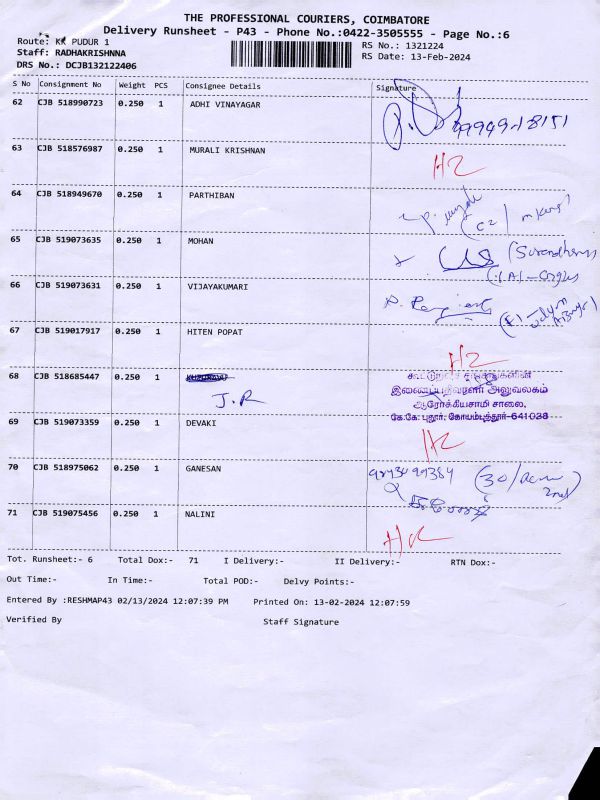 THE PROFESSIONAL COURIERS, COIMBATORE
Delivery Runsheet - P43 - Phone No.:0422-3505555 - Page No.:6
Route: KK PUDUR 1
RS No.: 1321224
Staff: RADHAKRISHNNA
RS Date: 13-Feb-2024
DRS No.: DCJB132122406
S No Consignment No Weight PCS Consignee Details Signature
62 CJB 518990723 0.250 1 ADHI VINAYAGAR
63 CJB 518576987 0.250 1 MURALI KRISHNAN
64 CJB 518949670 0.250 1 PARTHIBAN
65 CJB 519073635 0.250 1 MOHAN
66 CJB 519073631 0.250 1 VIJAYAKUMARI
67 CJB 519017917 0.250 1 HITEN POPAT
68 CJB 518685447 0.250 1
J.R
இணைப்பதிவாளர் அலுவலகம்
ஆரோக்கியசாமி சாலை,
கே.கே. புதூர், கோயம்புத்தூர்-641038
69 CJB 519073359 0.250 1 DEVAKI
70 CJB 518975062 0.250 1 GANESAN
71 CJB 519075456 0.250 1 NALINI
Tot. Runsheet:- 6 Total Dox:- 71 I Delivery:- II Delivery:- RTN Dox:-
Out Time:- In Time:- Total POD:- Delvy Points:-
Entered By :RESHMAP43 02/13/2024 12:07:39 PM Printed On: 13-02-2024 12:07:59
Verified By Staff Signature